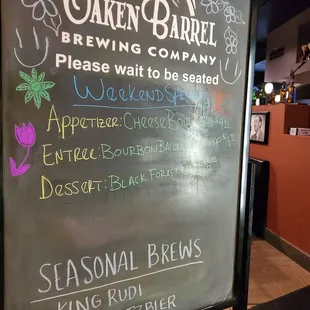 Oaken Barrel
BREWING COMPANY
Please wait to be seated
Weekend
Appetizer: Cheese
Entree: Bourbon
Dessert: Black Forest
SEASONAL BREWS
KING RUDI